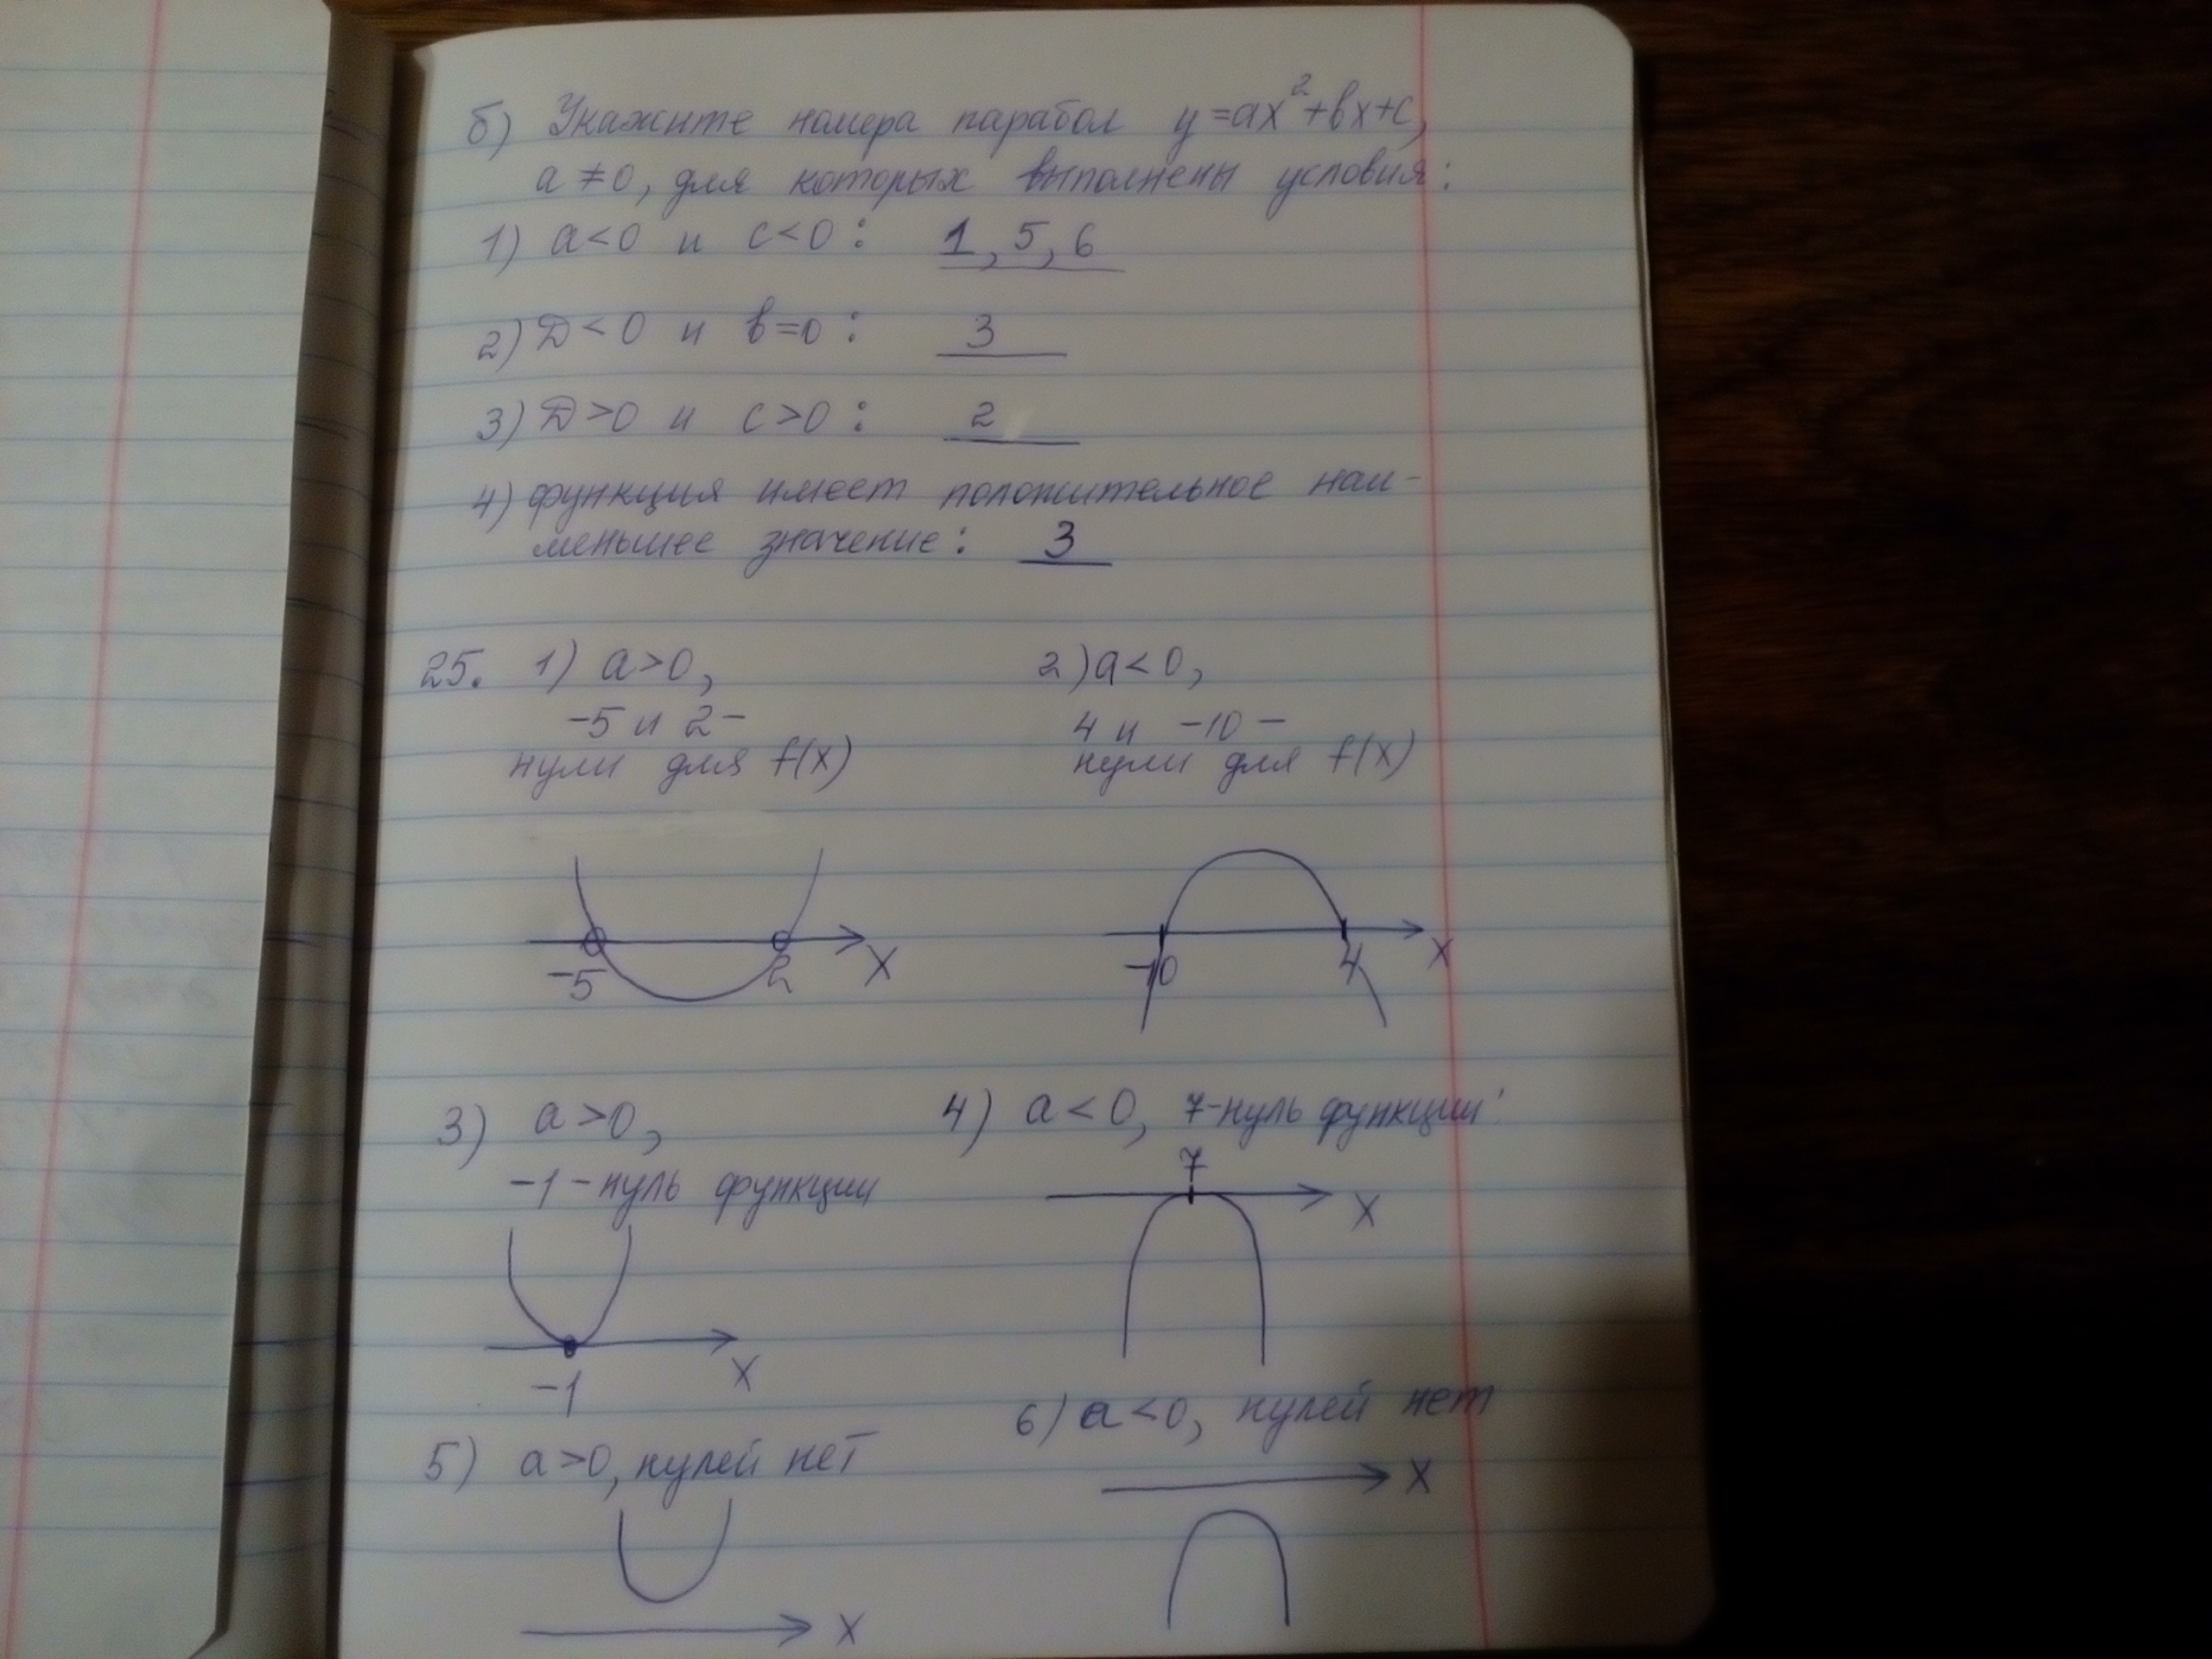 б) Укажите номера парабол y=ax²+bx+c,
a≠0, для которых выполнены условия:
1) a<0 и c<0: 1, 5, 6
2) D<0 и b=0: 3
3) D>0 и c>0: 2
4) функция имеет положительное наи-
меньшее значение: 3
25. 1) a>0,
-5 и 2-
нули для f(x)
2) a<0,
4 и -10 -
нули для f(x)
-5 2 X
-10 4 X
3) a>0,
-1 - нуль функции
4) a<0, 7-нуль функции
7
X
-1 X
5) a>0, нулей нет
6) a<0, нулей нет
X
X